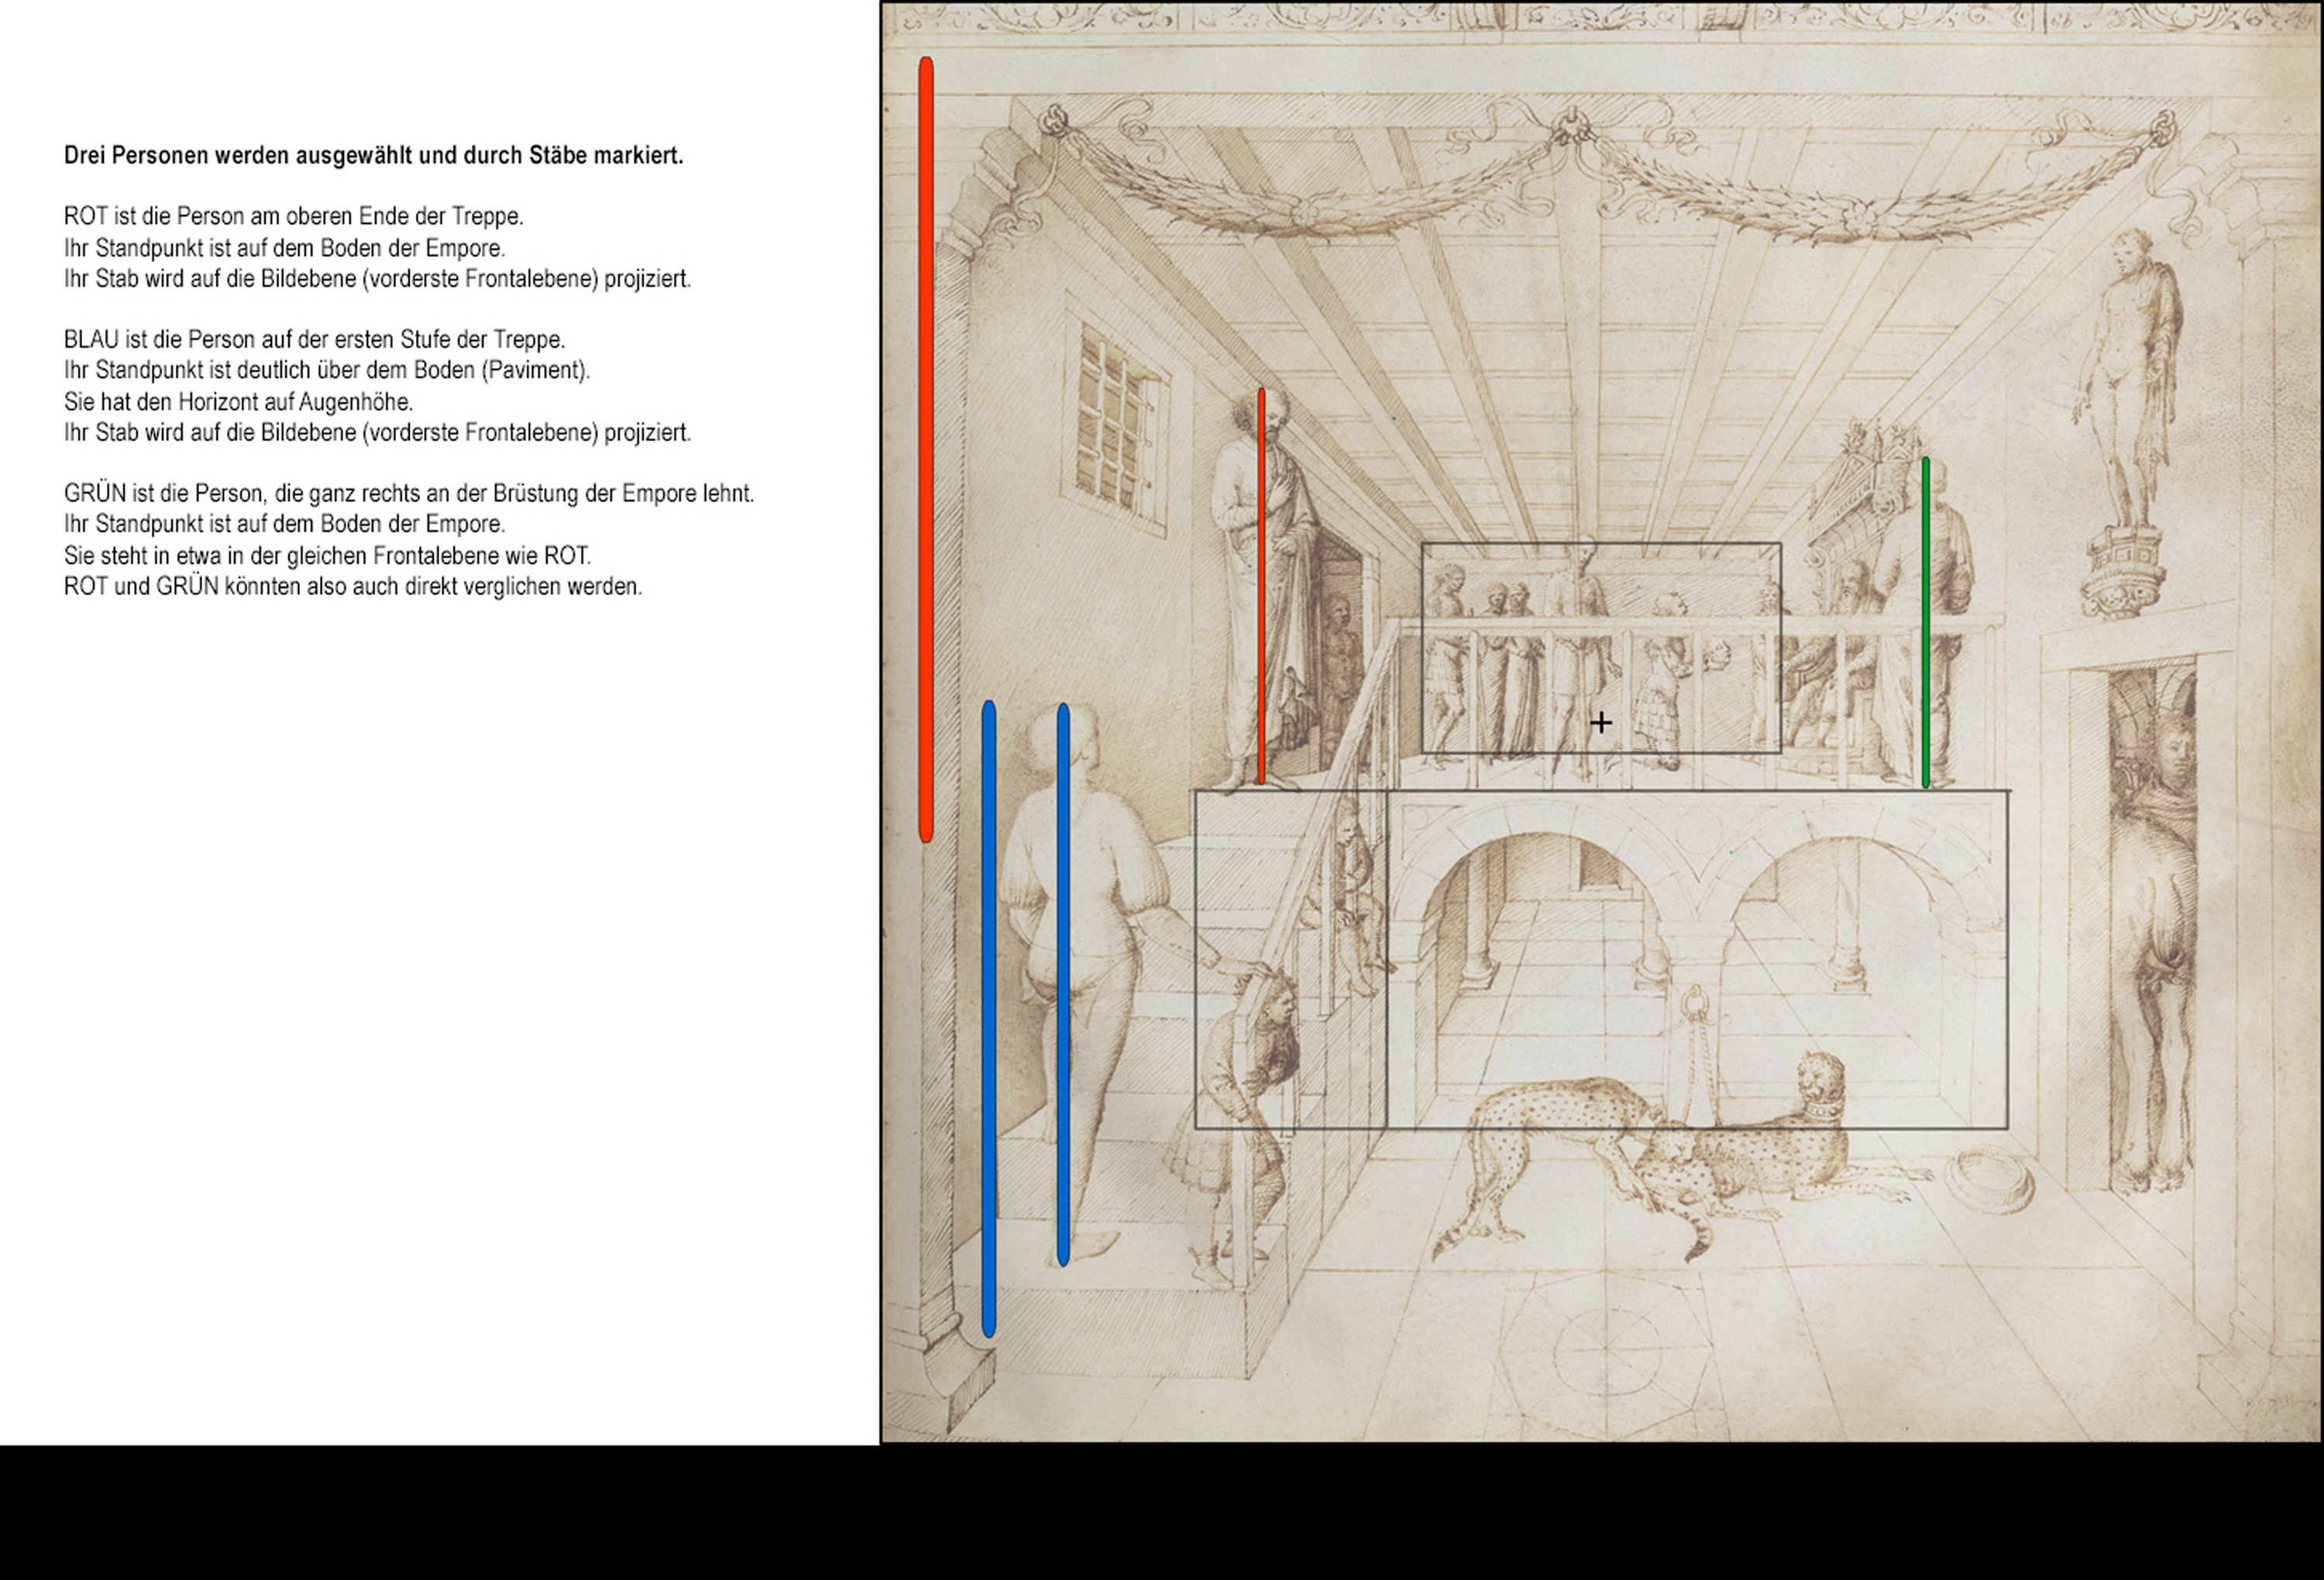 Drei Personen werden ausgewählt und durch Stäbe markiert.
ROT ist die Person am oberen Ende der Treppe.
Ihr Standpunkt ist auf dem Boden der Empore.
Ihr Stab wird auf die Bildebene (vorderste Frontalebene) projiziert.
BLAU ist die Person auf der ersten Stufe der Treppe.
Ihr Standpunkt ist deutlich über dem Boden (Paviment).
Sie hat den Horizont auf Augenhöhe.
Ihr Stab wird auf die Bildebene (vorderste Frontalebene) projiziert.
GRÜN ist die Person, die ganz rechts an der Brüstung der Empore lehnt.
Ihr Standpunkt ist auf dem Boden der Empore.
Sie steht in etwa in der gleichen Frontalebene wie ROT.
ROT und GRÜN könnten also auch direkt verglichen werden.